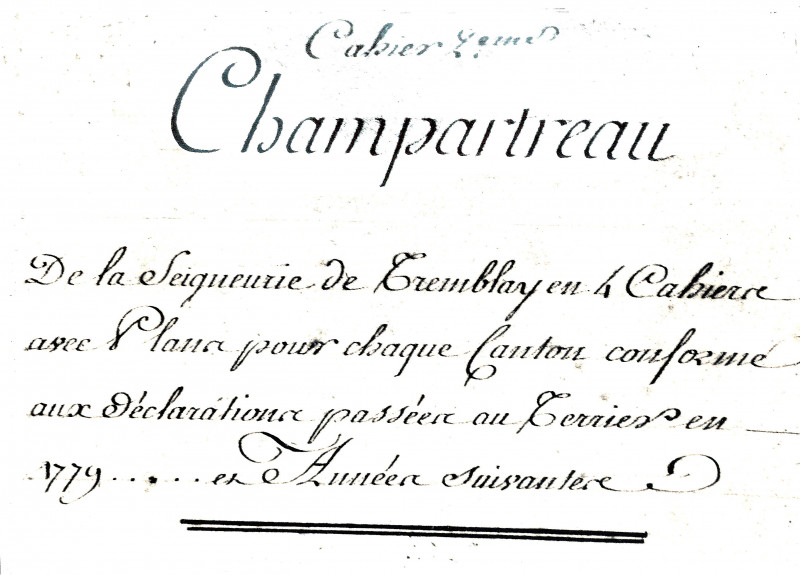 Cahier 2eme
Champartreau
De la Seigneurie de Tremblay en 4 Cahiers
avec Plans pour chaque Canton conforme
aux déclarations passées au Terrier en
1779..... et Années suivantes